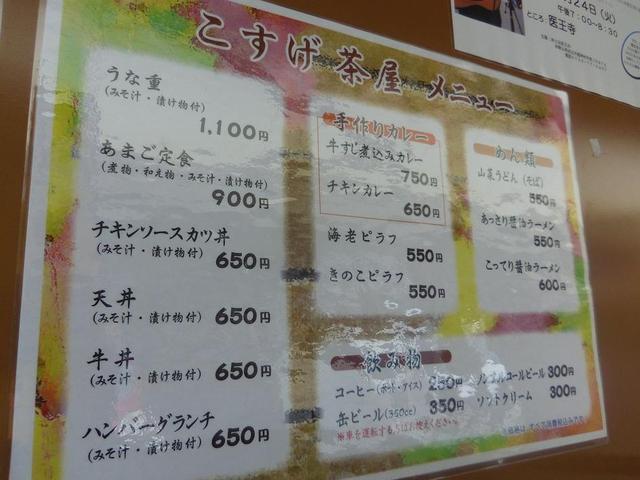 こすげ茶屋 メニュー
うな重
(みそ汁・漬け物付)
1,100円
あまご定食
(煮物・和え物・みそ汁・漬け物付)
900円
チキンソースカツ丼
(みそ汁・漬け物付) 650円
天丼
(みそ汁・漬け物付) 650円
牛丼
(みそ汁・漬け物付) 650円
ハンバーグランチ
(みそ汁・漬け物付) 650円
手作りカレー
牛すじ煮込みカレー
750円
チキンカレー
650円
海老ピラフ
550円
きのこピラフ
550円
めん類
山菜うどん(そば)
550円
あっさり醤油ラーメン
550円
こってり醤油ラーメン
600円
飲み物
コーヒー(ホット・アイス) 250円
缶ビール(350cc) 350円
※車を運転する方はお控えください。
ノンアルコールビール 300円
ソフトクリーム 300円
24日(火)
午後7:00～8:30
ところ 医王寺